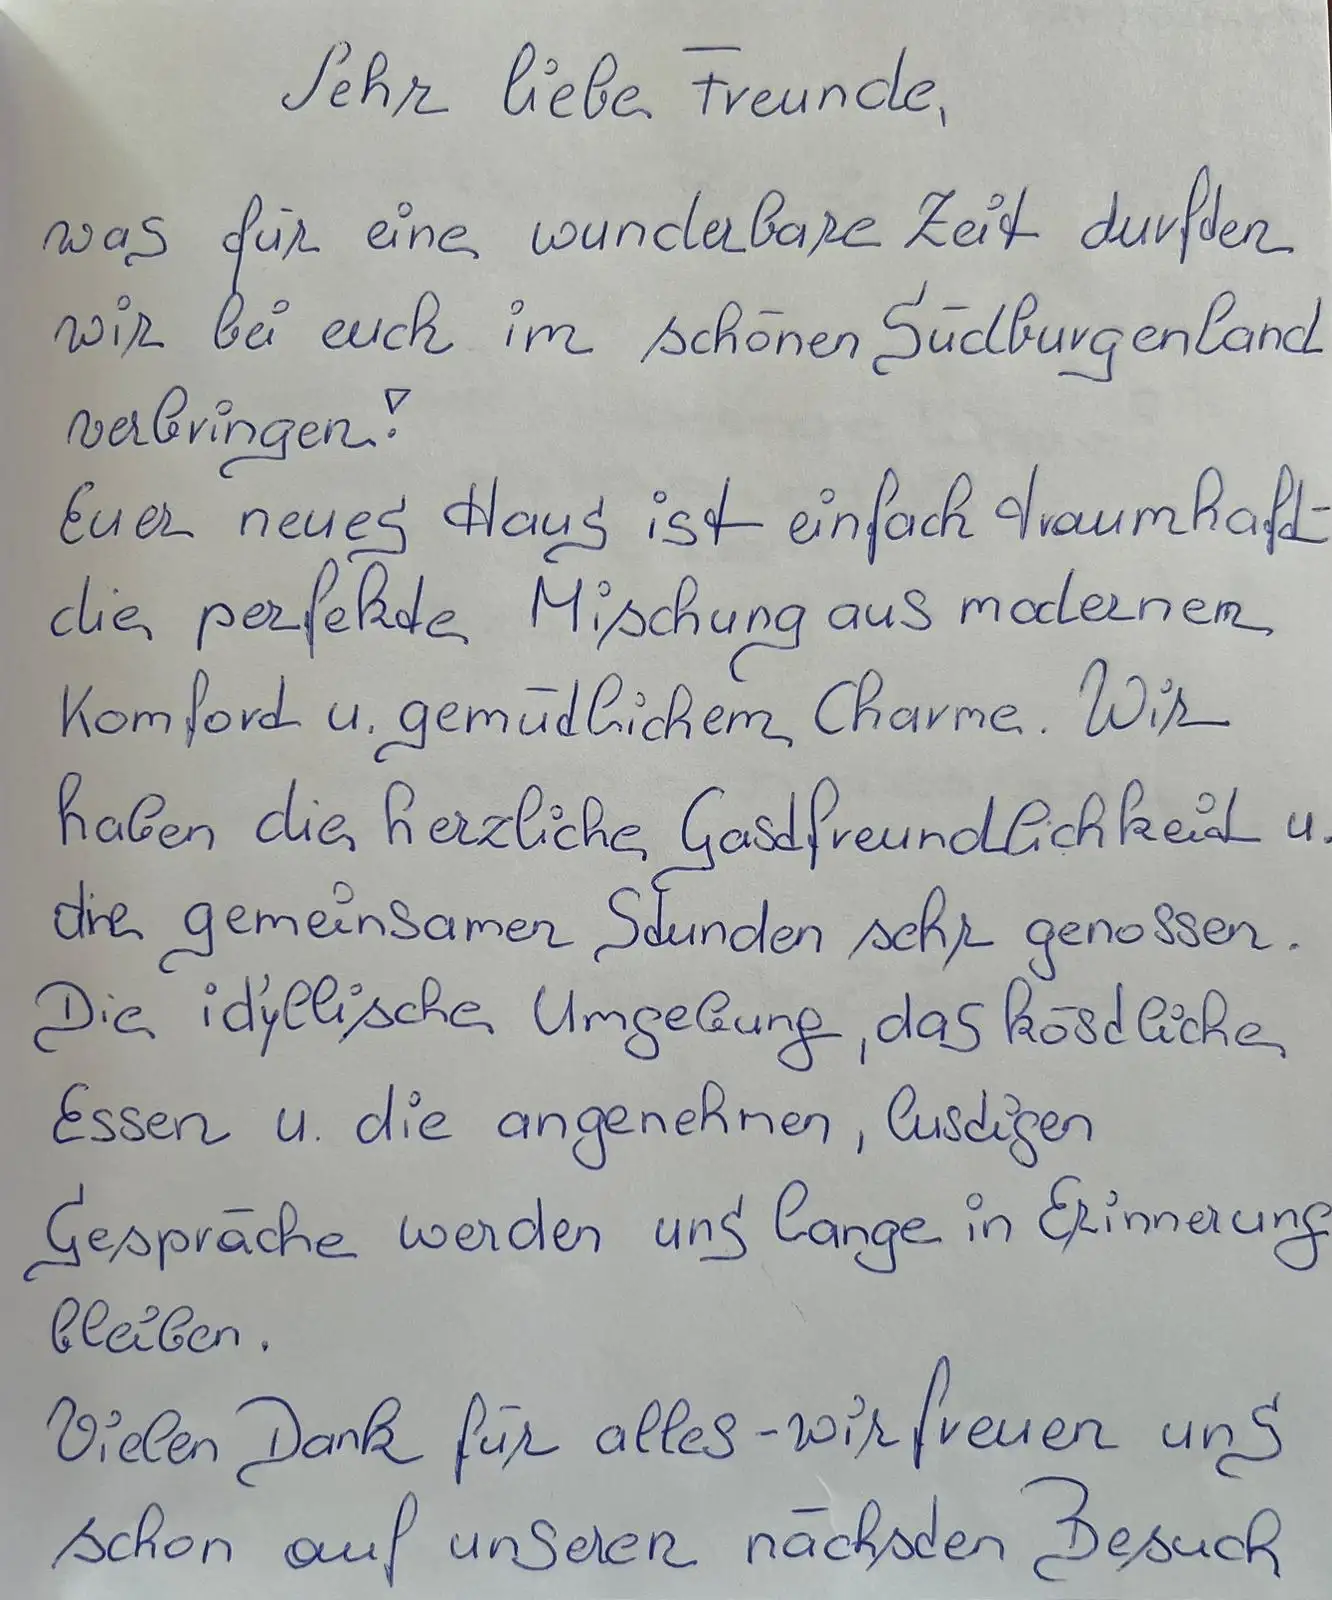 Sehr liebe Freunde,
was für eine wunderbare Zeit durften
wir bei euch im schönen Südburgenland
verbringen!
Euer neues Haus ist einfach traumhaft-
die perfekte Mischung aus modernem
Komfort u. gemütlichem Charme. Wir
haben die herzliche Gastfreundlichkeit u.
die gemeinsamen Stunden sehr genossen.
Die idyllische Umgebung, das köstliche
Essen u. die angenehmen, lustigen
Gespräche werden uns lange in Erinnerung
bleiben.
Vielen Dank für alles - wir freuen uns
schon auf unseren nächsten Besuch